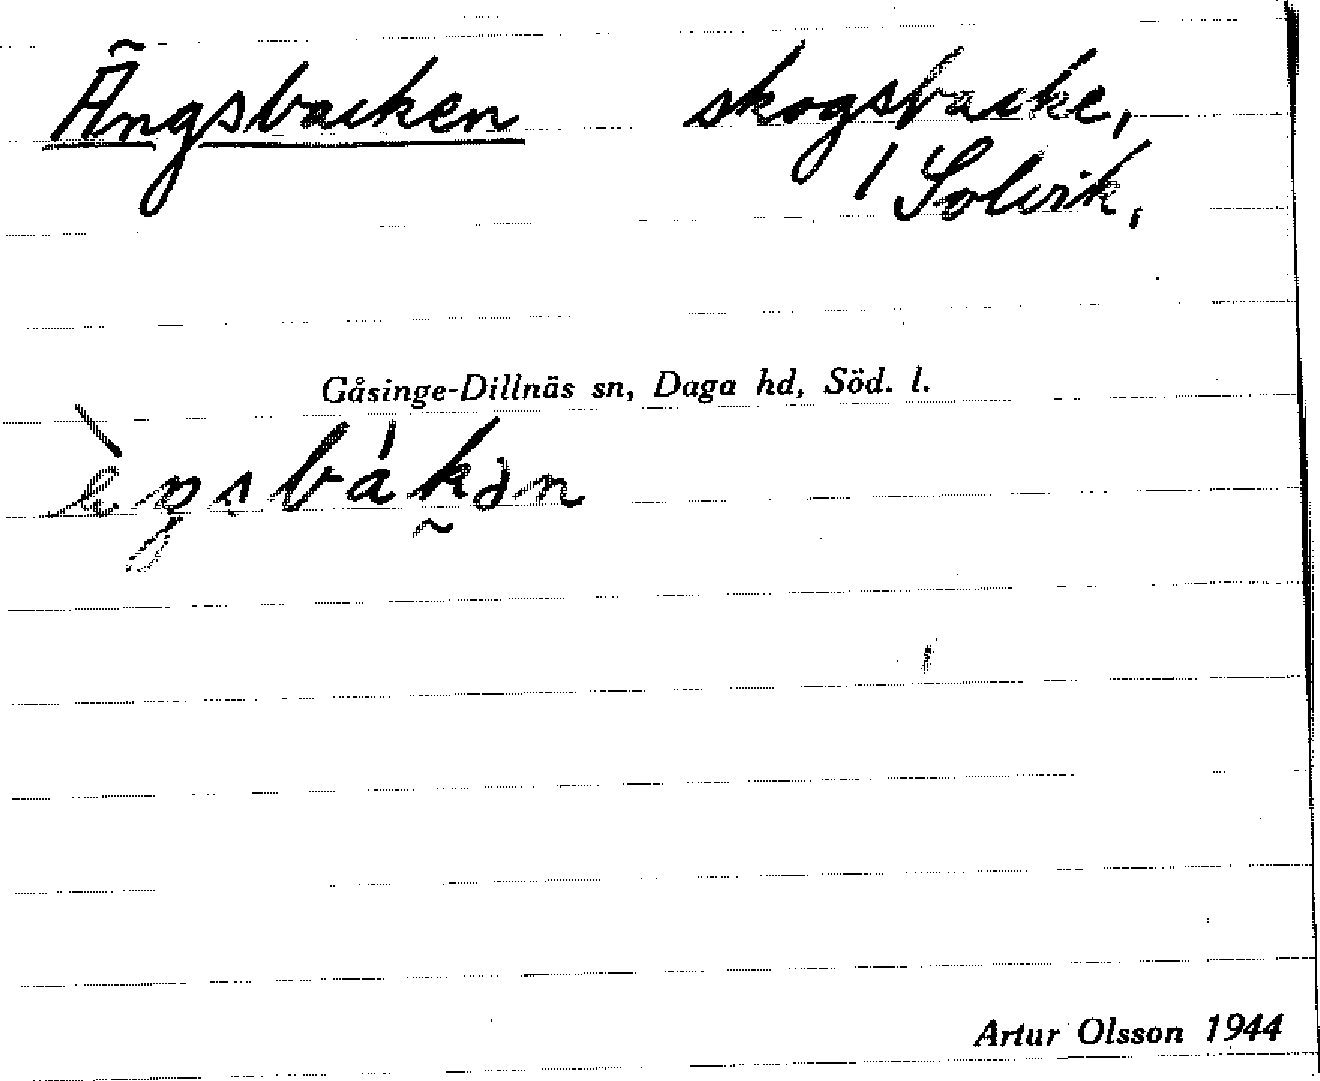 Ängsbacken skogsbacke,
/ Solvik,
Gåsinge-Dillnäs sn, Daga hd, Söd. l.
Artur Olsson 1944